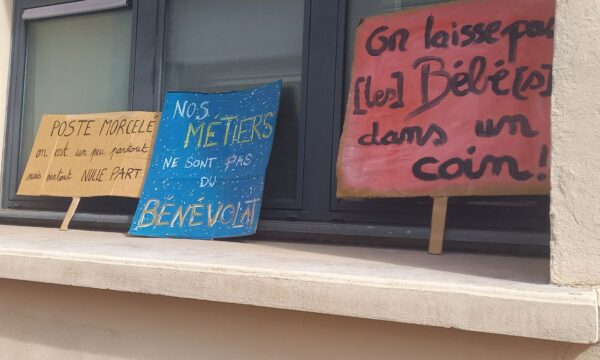 POSTE MORCELÉ
on est un peu partout
mais surtout NULLE PART
NOS
MÉTIERS
NE SONT PAS
DU
BÉNÉVOLAT
On laisse pas
[les] Bébé[s]
dans un
coin!